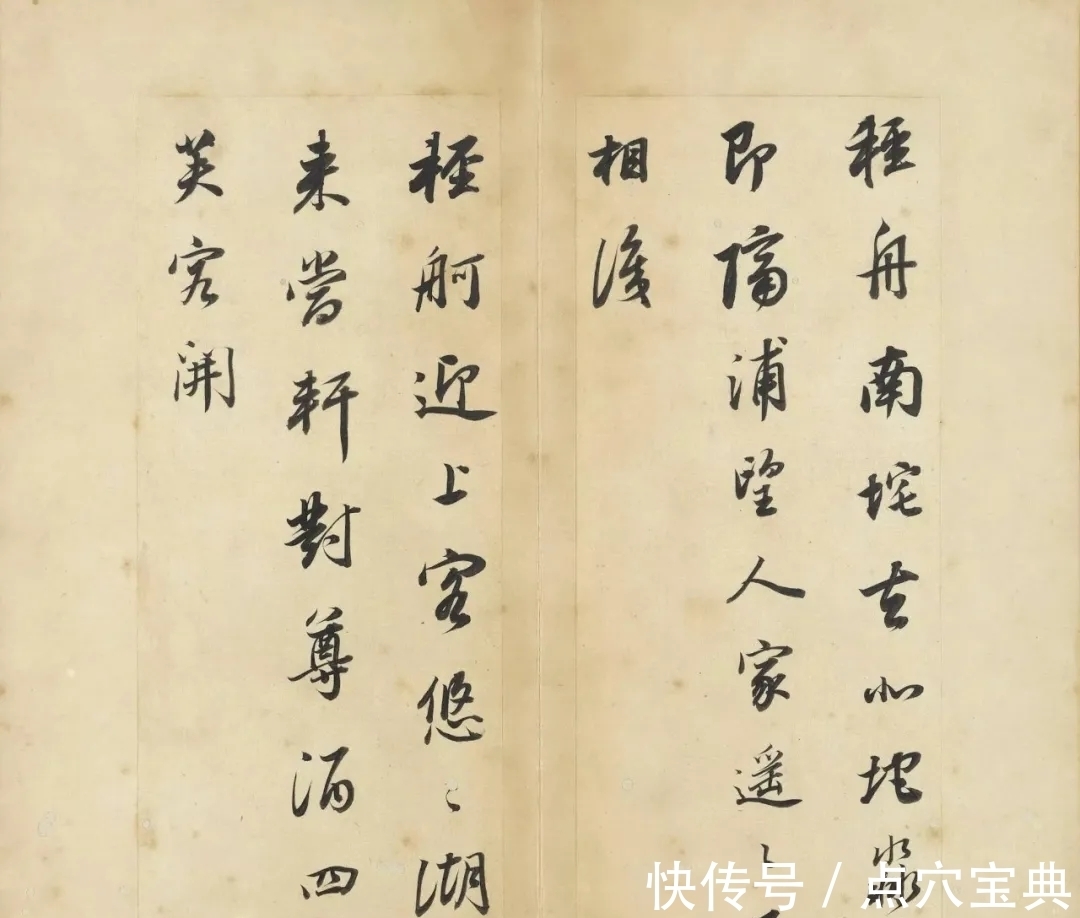 輕舟南垞去北垞淼
即隔浦望人家遥〻
相識
輕舸迎上客悠〻湖
来當軒對尊酒四
芙容開
快传号/点穴宝典